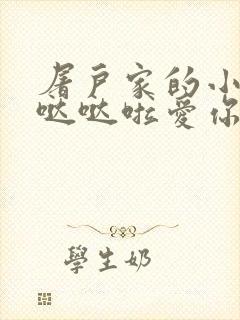 屠戶家的小
哒哒啦爱你
學生奶